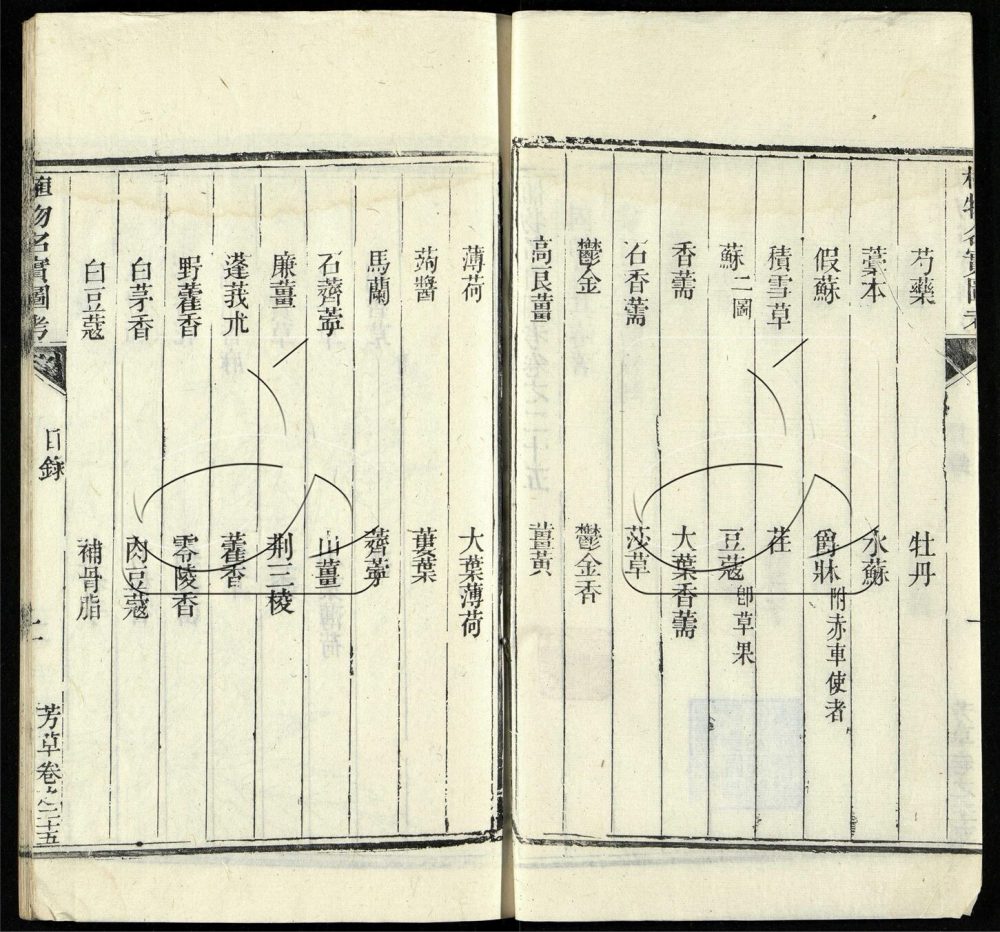 植物名實圖考
芍藥 牡丹
藁本 水蘇
假蘇 爵牀附赤車使者
積雪草 荏
蘇二圖 豆蔻即草果
香薷 大葉香薷
石香薷 莎草
鬱金 鬱金香
高良薑 薑黃
薄荷 大葉薄荷
蒟醬
馬蘭 薺薴
石薺薴 山薑
廉薑 荆三棱
蓬莪朮 藿香
野藿香 零陵香
白茅香 肉豆蔻
白豆蔻 補骨脂
植物名實圖考 目錄 二 芳草卷之二十五